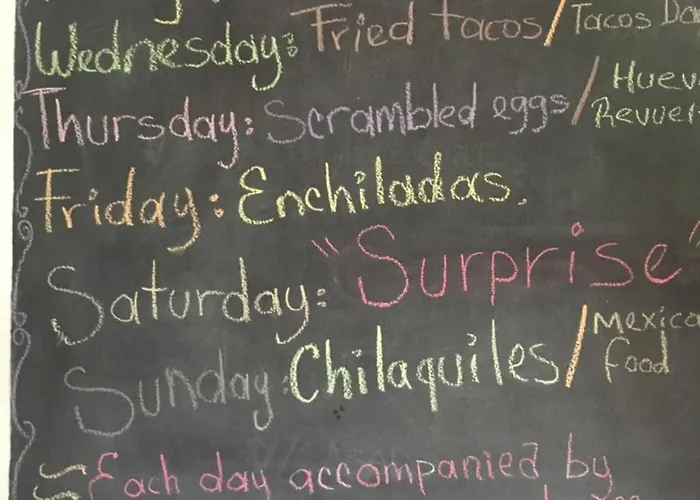 Wednesday: Fried tacos/Tacos
Thursday: Scrambled eggs/
Friday: Enchiladas.
Saturday: "Surprise"
Sunday: Chilaquiles/
food
Each day accompanied by